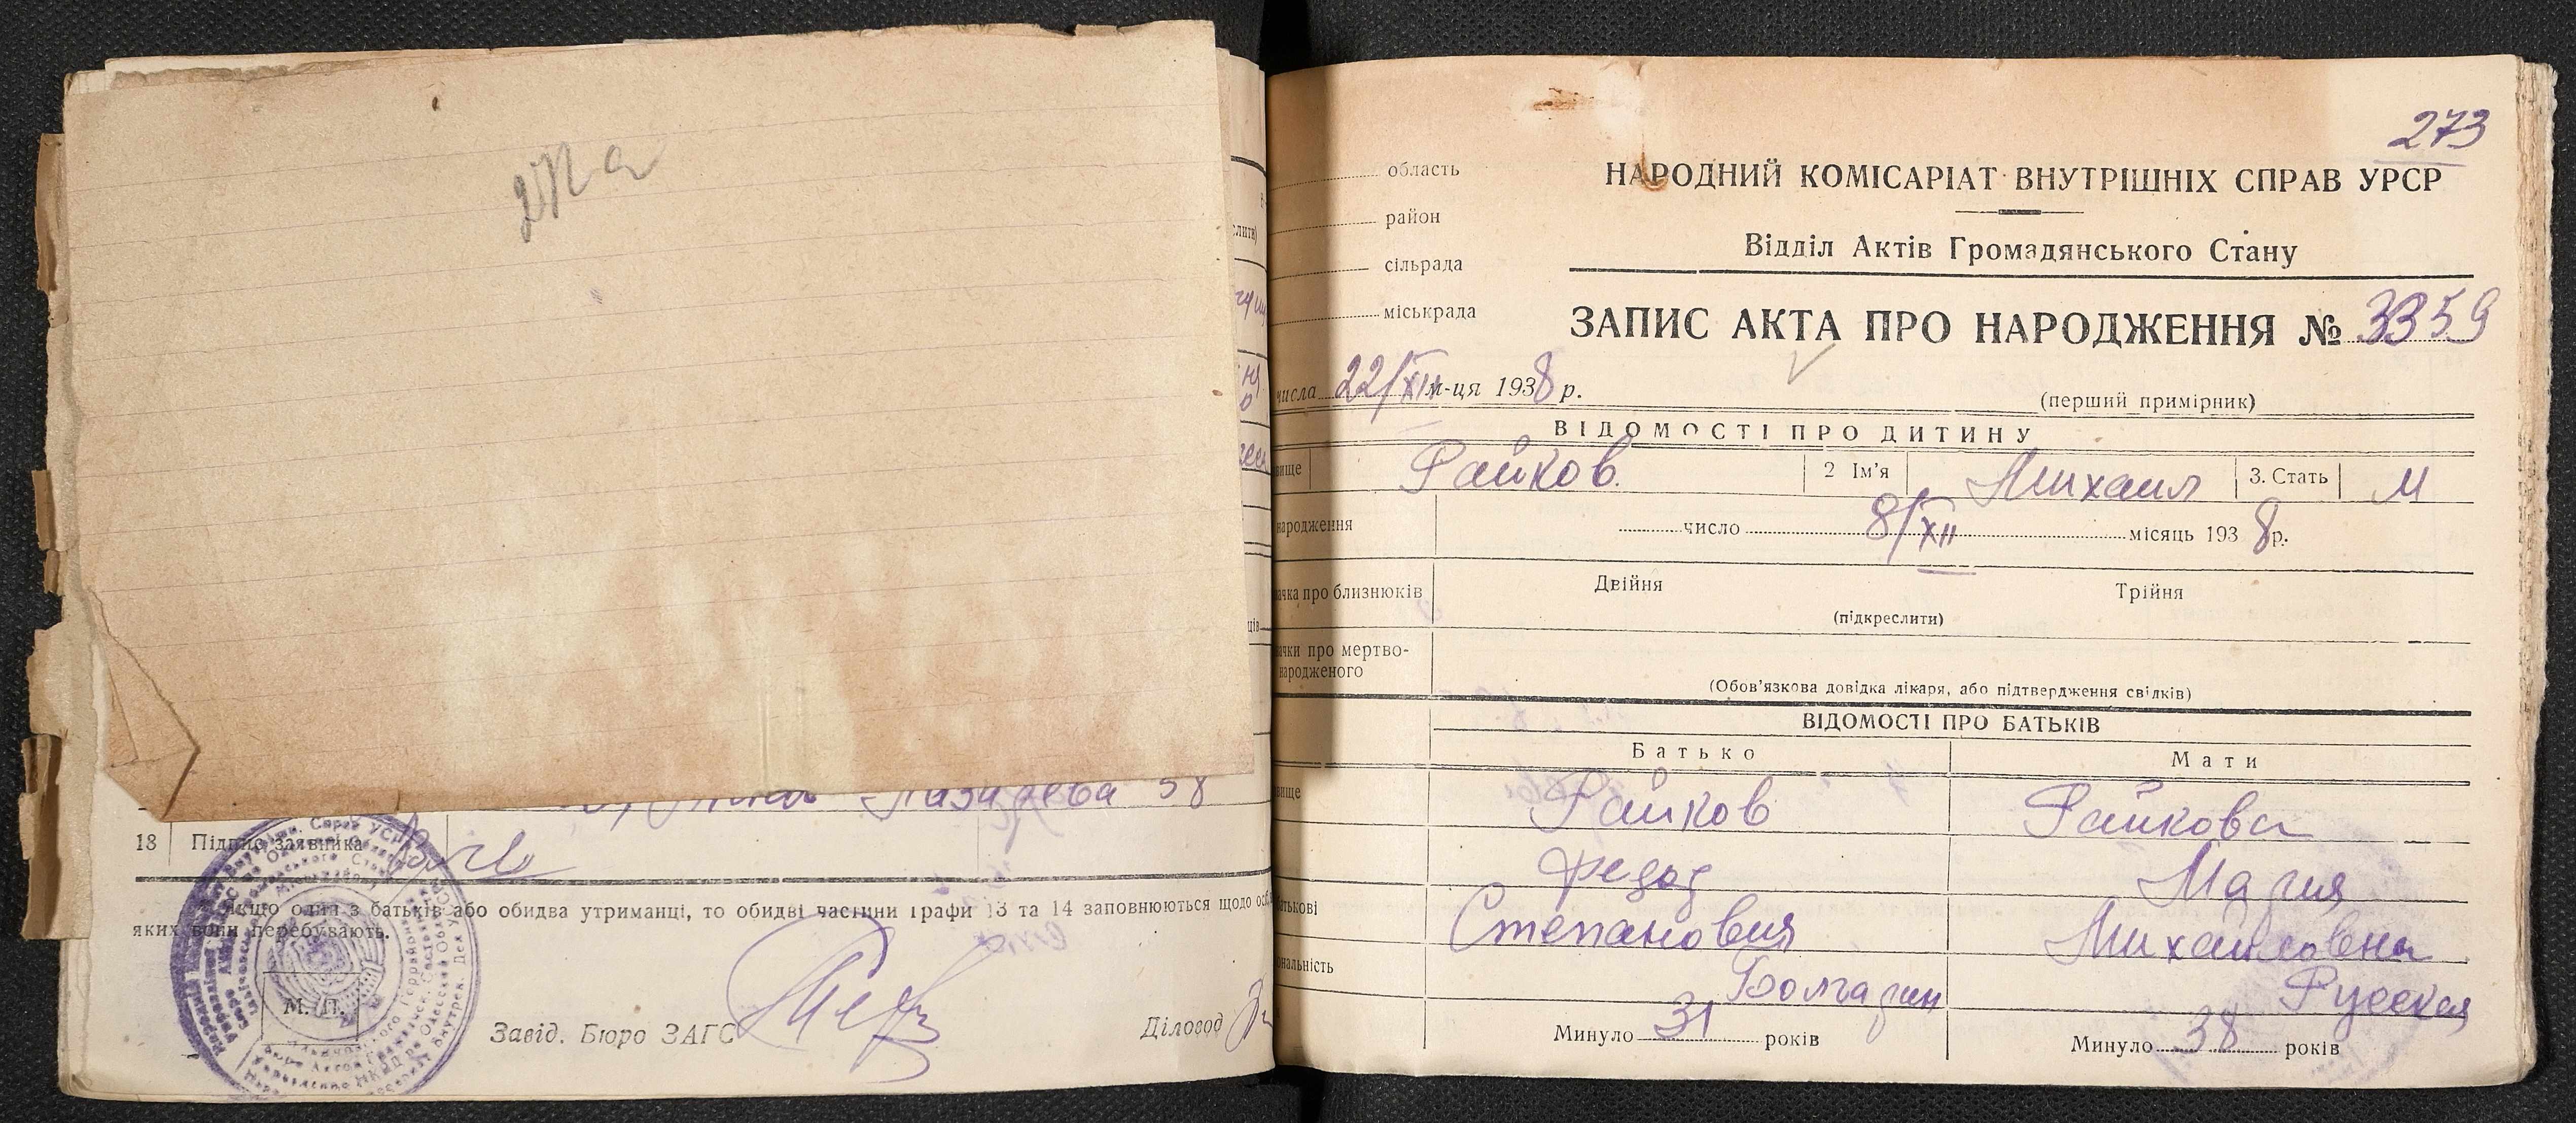 13 Підпис заявника
Якщо один з батьків або обидва утриманці, то обидві частини графи 13 та 14 заповнюються щодо
яких вони перебувають.
М. П.
Завід. Бюро ЗАГС
Діловод
273
область
район
сільрада
міськрада
НАРОДНИЙ КОМІСАРІАТ ВНУТРІШНІХ СПРАВ УРСР
Відділ Актів Громадянського Стану
ЗАПИС АКТА ПРО НАРОДЖЕННЯ № 3359
числа 22/XII м-ця 1938 р.
(перший примірник)
ВІДОМОСТІ ПРО ДИТИНУ
вище Райков. 2 Ім'я Михаил 3. Стать М
народження число 8/XII місяць 1938р.
ачка про близнюків Двійня Трійня
(підкреслити)
ачки про мертво-
народженого
(Обов'язкова довідка лікаря, або підтвердження свідків)
ВІДОМОСТІ ПРО БАТЬКІВ
Батько Мати
вище Райков Райкова
Федор Мария
атькові Степанович Михайловна
ональність Болгарин Русская
Минуло 31 років Минуло 38 років